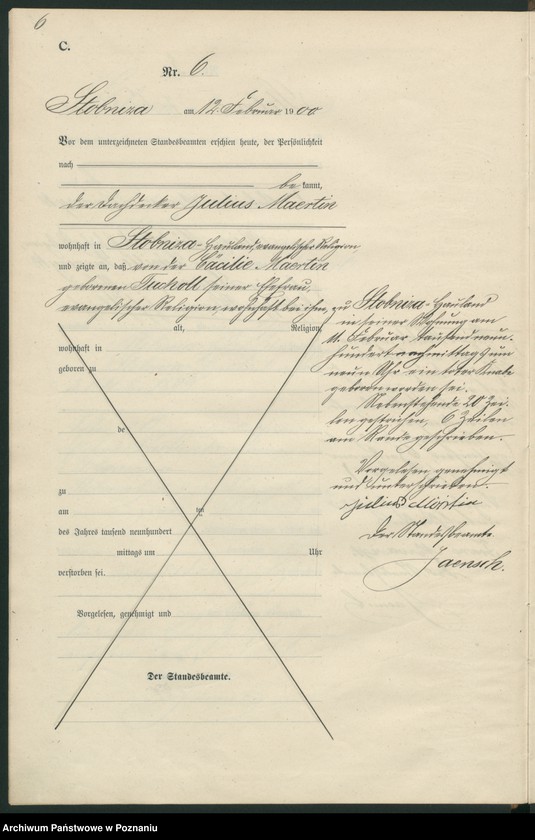 6
C.
Nr. 6.
Stobniza am 12. Februar 1900
Vor dem unterzeichneten Standesbeamten erschien heute, der Persönlichkeit
nach
bekannt,
der Dachdecker Julius Maertin
wohnhaft in Stobniza-Hauland, evangelischer Religion,
und zeigte an, daß von der Cäcilie Maertin
geborenen Tucholl seiner Ehefrau,
evangelischer Religion, wohnhaft bei ihm, zu Stobniza-Hauland
in seiner Wohnung am
11. Februar tausend neun-
hundert mittags um
neun Uhr ein toter Knabe
geboren worden sei.
Nebenstehende 20 Zei-
len gestrichen, 6 Zeilen
am Rande geschrieben.
Vorgelesen, genehmigt
und unterschrieben
Julius
Der Standesbeamte
Jaensch.
alt, Religion,
wohnhaft in
geboren zu
de
zu
am
des Jahres tausend neunhundert
mittags um Uhr
verstorben sei.
Vorgelesen, genehmigt und
Der Standesbeamte.
Archiwum Państwowe w Poznaniu